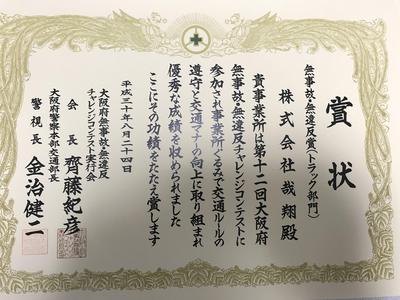 賞状
無事故・無違反賞(トラック部門)
株式会社哉翔殿
貴事業所は第十二回大阪府
無事故・無違反チャレンジコンテストに
参加され事業所ぐるみで交通ルールの
遵守と交通マナーの向上に取り組まれ
優秀な成績を収められました
ここにその功績をたたえ賞します
平成三十年八月二十四日
大阪府無事故・無違反
チャレンジコンテスト実行会
会長 齊藤紀彦
大阪府警察本部交通部長
警視長 金治健二